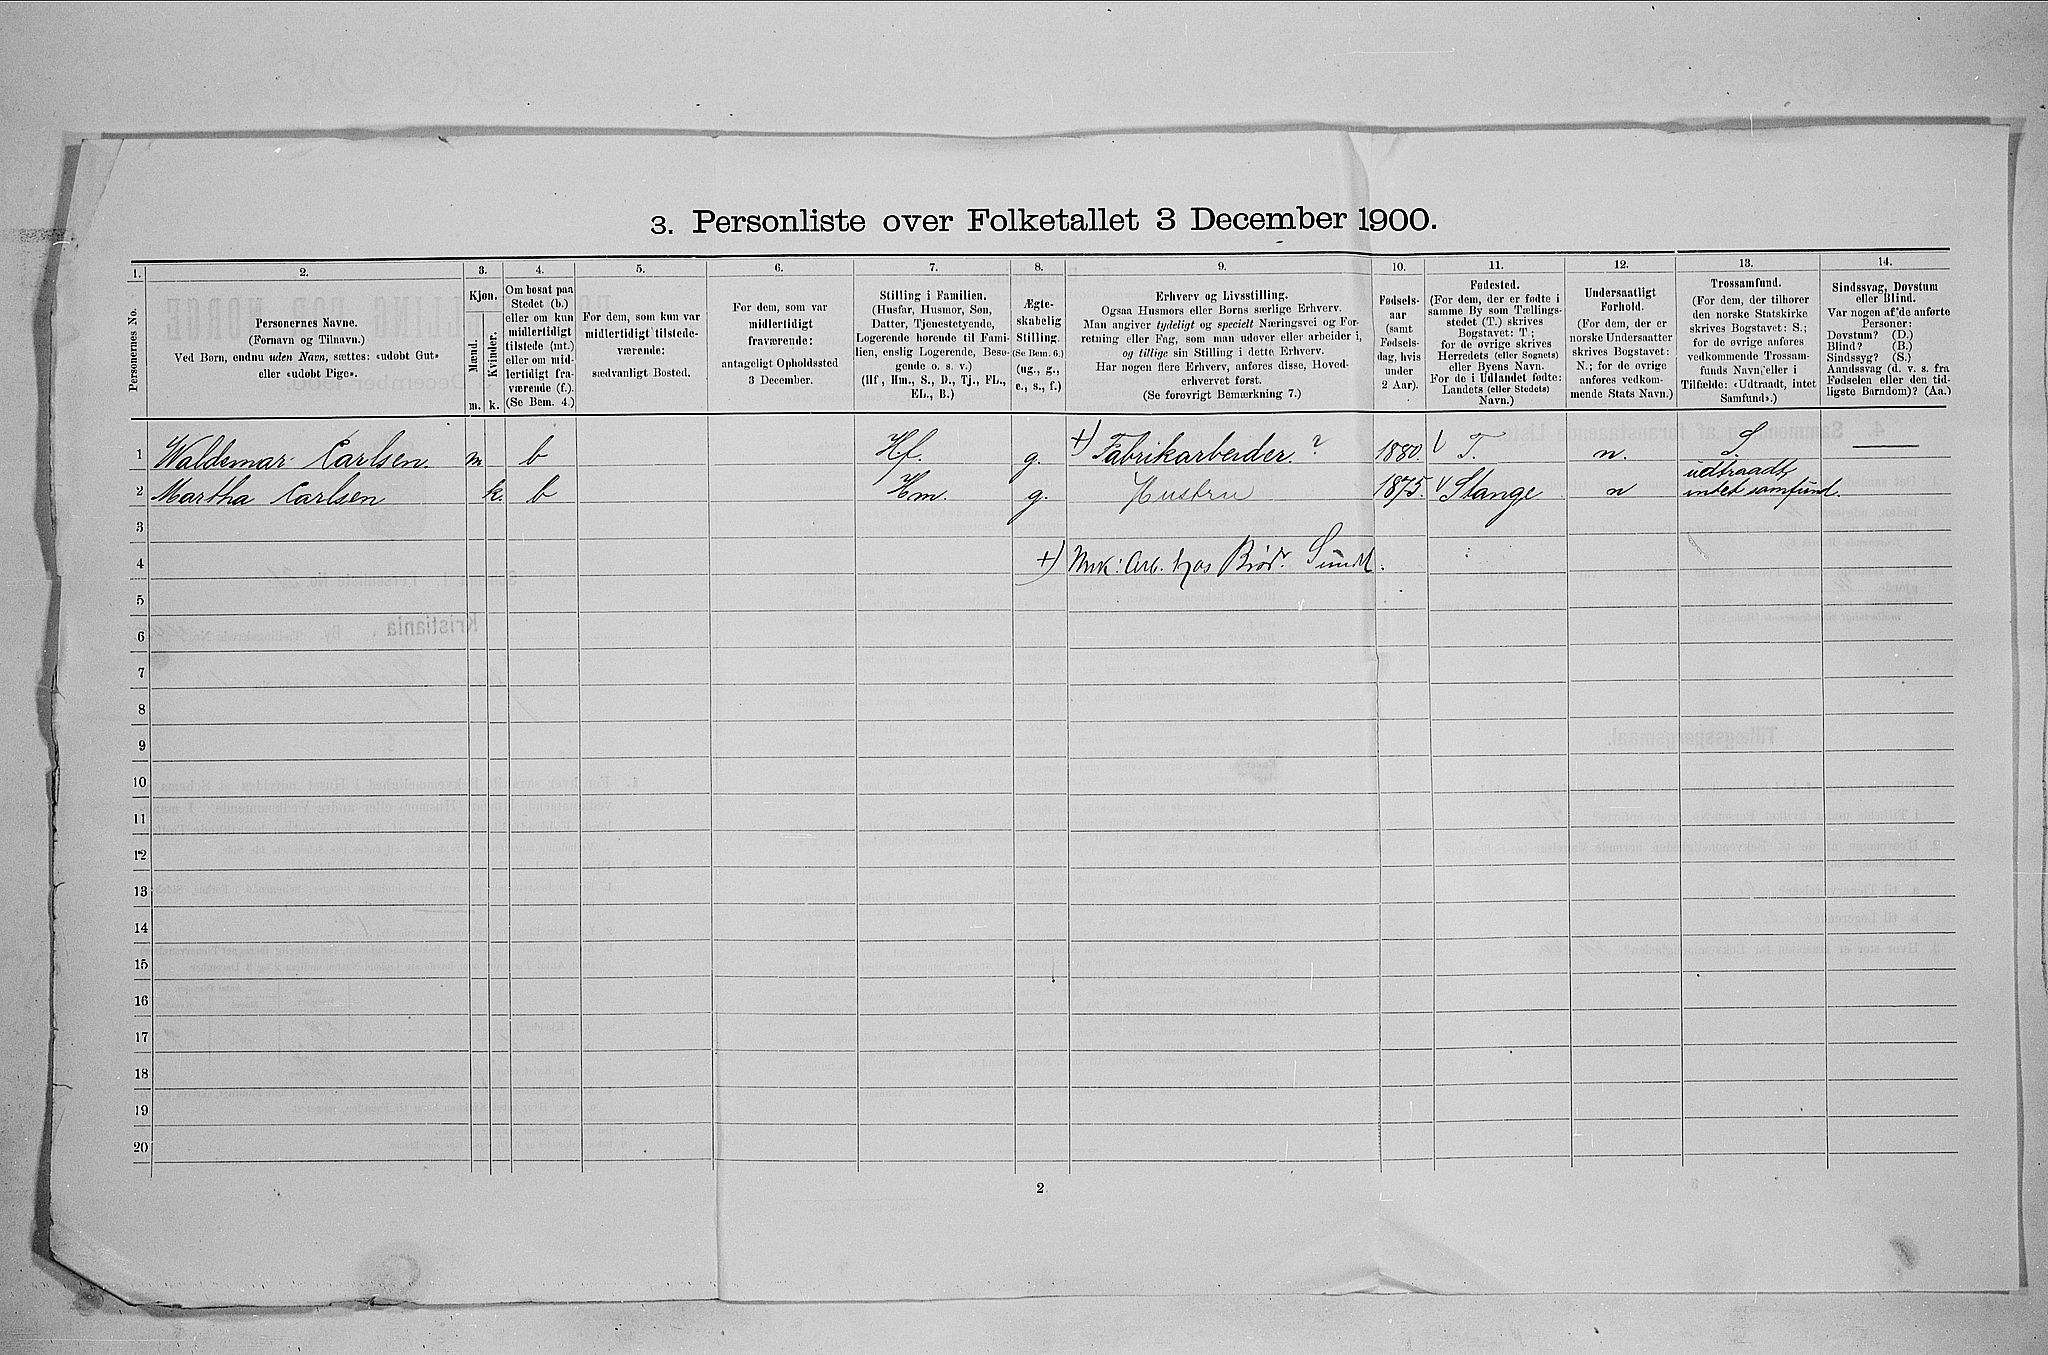 3. Personliste over Folketallet 3 December 1900.
1. 2. 3. 4. 5. 6. 7. 8. 9. 10. 11. 12. 13. 14.
Personernes No.
Personernes Navne.
(Fornavn og Tilnavn.)
Ved Børn, endnu uden Navn, sættes: «udøbt Gut»
eller «udøbt Pige».
Kjøn.
Mænd.
Kvinder.
m. k.
Om bosat paa
Stedet (b.)
eller om kun
midlertidigt
tilstede (mt.)
eller om mid-
lertidigt fra-
værende (f.).
(Se Bem. 4.)
For dem, som kun var
midlertidigt tilstede-
værende:
sædvanligt Bosted.
For dem, som var
midlertidigt
fraværende:
antageligt Opholdssted
3 December.
Stilling i Familien.
(Husfar, Husmor, Søn,
Datter, Tjenestetyende,
Logerende hørende til Fami-
lien, enslig Logerende, Besø-
gende o. s. v.)
(Hf, Hm., S., D., Tj., FL.,
EL., B.)
Ægte-
skabelig
Stilling.
(Se Bem. 6.)
(ug., g.,
e., s., f.)
Erhverv og Livsstilling.
Ogsaa Husmors eller Børns særlige Erhverv.
Man angiver tydeligt og specielt Næringsvei og For-
retning eller Fag, som man udøver eller arbeider i,
og tillige sin Stilling i dette Erhverv.
Har nogen flere Erhverv, anføres disse, Hoved-
erhvervet først.
(Se forøvrigt Bemærkning 7.)
Fødsels-
aar
(samt
Fødsels-
dag, hvis
under
2 Aar).
Fødested.
(For dem, der er fødte i
samme By som Tællings-
stedet (T.) skrives
Bogstavet: T.;
for de øvrige skrives
Herredets (eller Sognets)
eller Byens Navn.
For de i Udlandet fødte:
Landets (eller Stedets)
Navn.)
Undersaatligt
Forhold.
(For dem, der er
norske Undersaatter
skrives Bogstavet:
N.; for de øvrige
anføres vedkom-
mende Stats Navn.)
Trossamfund.
(For dem, der tilhører
den norske Statskirke
skrives Bogstavet: S.;
for de øvrige anføres
vedkommende Trossam-
funds Navn, eller i
Tilfælde: «Udtraadt, intet
Samfund».)
Sindssvag, Døvstum
eller Blind.
Var nogen af de anførte
Personer:
Døvstum? (D.)
Blind? (B.)
Sindssyg? (S.)
Aandssvag (d. v. s. fra
Fødselen eller den tid-
ligste Barndom)? (Aa.)
1 Waldemar Carlsen. m b Hf. g. +) Fabrikarbeider. ? 1880. T. n. S.
2 Martha Carlsen k. b Hm. g. Hustru 1875. Stange n udtraadt,
intet samfund.
3
4 +) Mek: Arb. hos Brød. Sundt.
5
6
7
8
9
10
11
12
13
14
15
16
17
18
19
20
2